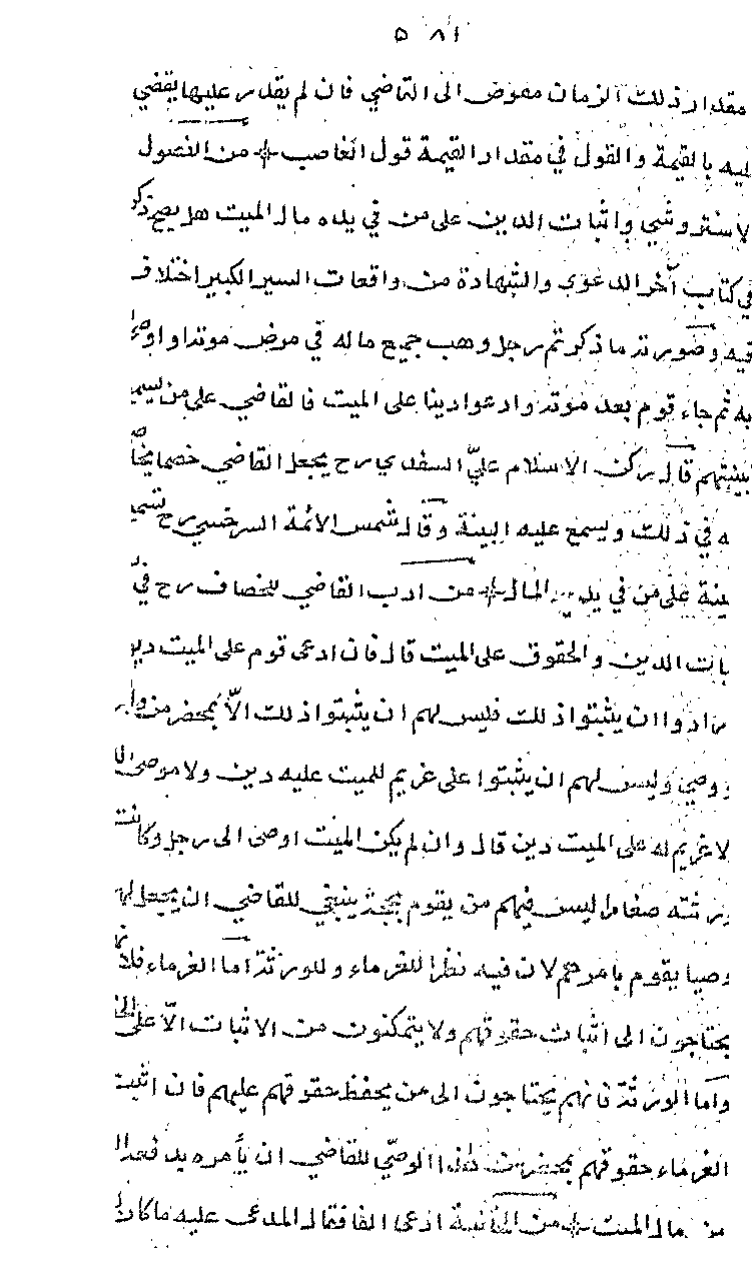 ٥٨١
مقدار ذلك الزمان مفوض الى القاضي فان لم يقدر عليها يقضي
عليه بالقيمة والقول في مقدار القيمة قول الغاصب * من الفصول
لاستروشني واثبات الدين على من في يده مال الميت هل يصح ذكر
في كتاب آخر الدعوى والشهادة من واقعات السير الكبير اختلاف
فيه وصورته ما ذكر ثم رجل وهب جميع ماله في مرض موته او اوصى
به ثم جاء قوم بعد موته وادعوا دينا على الميت فالقاضي على من يسمع
بينتهم قال ركن الاسلام علي السغدي رح يجعل القاضي خصما
ه في ذلك ويسمع عليه البينة وقال شمس الائمة السرخسي رح تسمع
بينة على من في يديه المال * من ادب القاضي للخصاف رح في
باث الدين والحقوق على الميت قال فان ادعى قوم على الميت دين
رادوا ان يثبتوا ذلك فليس لهم ان يثبتوا ذلك الّا بمحضر من وار
ووصي وليس لهم ان يثبتوا على غريم للميت عليه دين ولا موصى
لا غريم له على الميت دين قال وان لم يكن الميت اوصى الى رجل وكانت
ورثته صغارا ليس فيهم من يقوم بحجته ينبغي للقاضي ان يجعل لهم
وصيا يقوم بامرهم لان فيه نظرا للغرماء وللورثة اما الغرماء فلانهم
يحتاجون الى اثبات حقوقهم ولا يتمكنون من الاثبات الّا على
واما الورثة فانهم يحتاجون الى من يحفظ حقوقهم عليهم فان اثبت
الغرماء حقوقهم بمحضر من هذا الوصي للقاضي ان يأمره بدفع
من مال الميت * من الخانية ادعى الفا فقال المدعى عليه ما كان